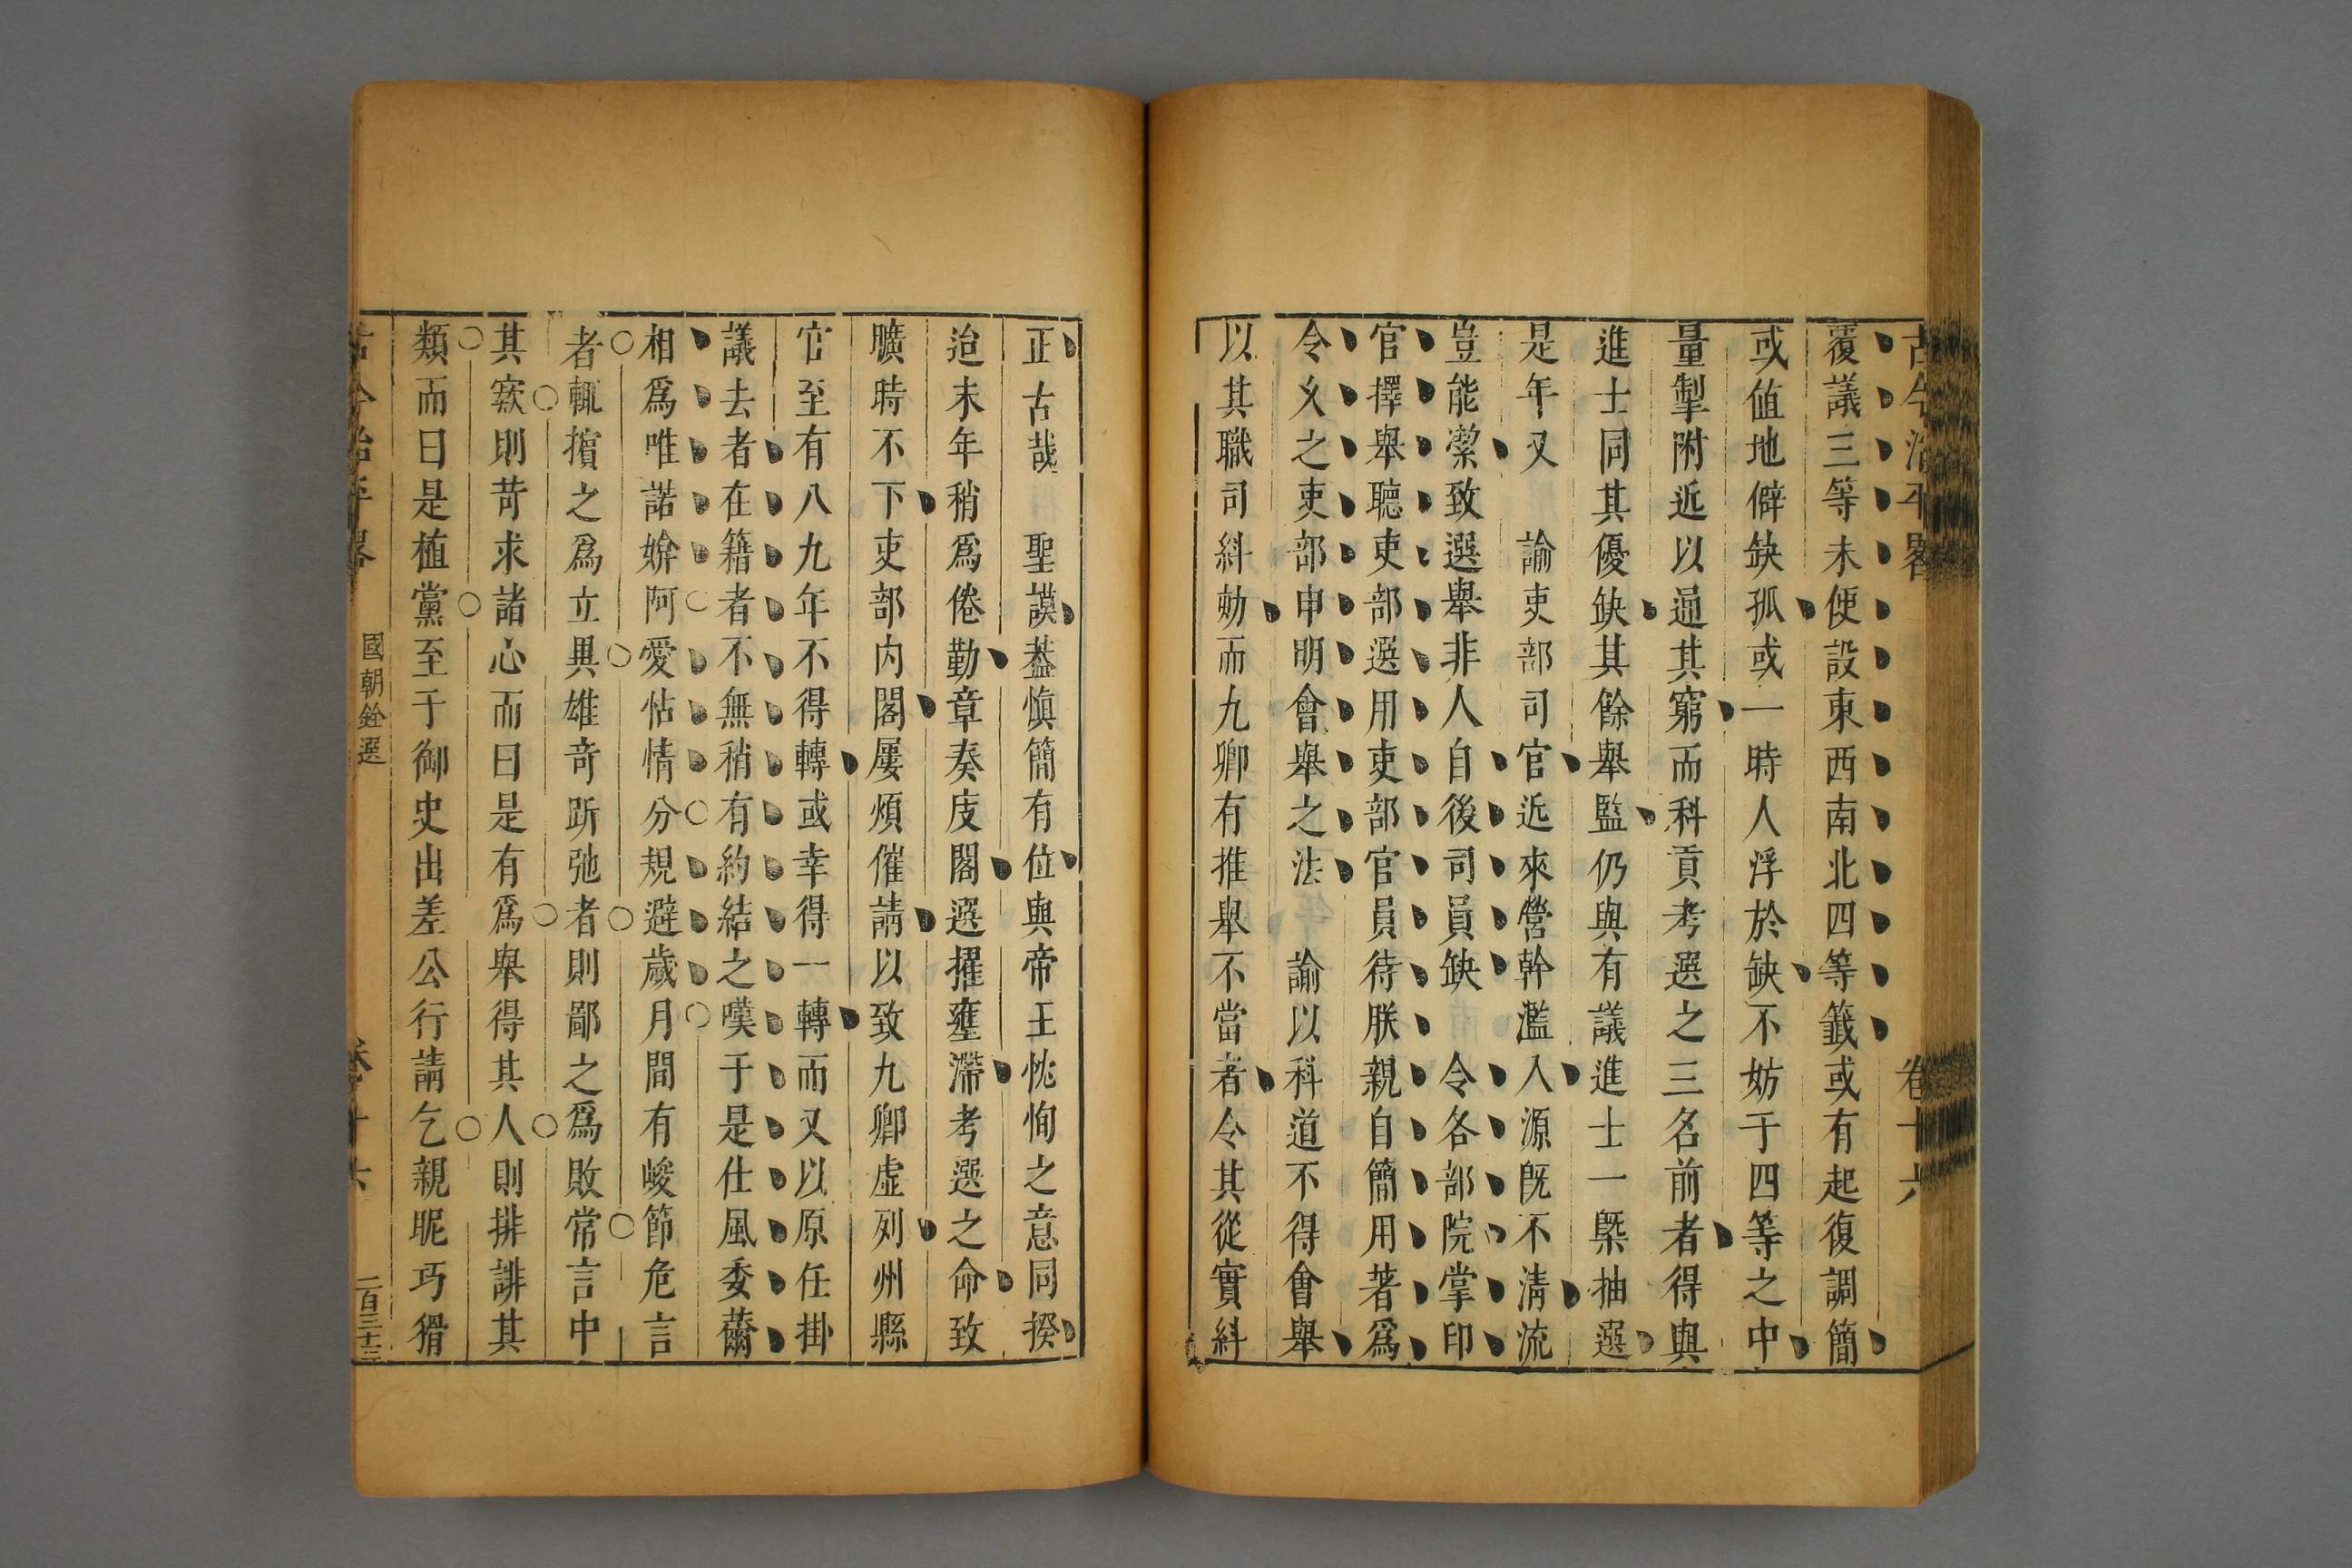 古今治平畧 卷十六
覆議三等未便設東西南北四等籤或有起復調簡
或值地僻缺孤或一時人浮於缺不妨于四等之中
量掣附近以通其窮而科貢考選之三名前者得與
進士同其優缺其餘舉監仍與有議進士一槩抽選
是年又 諭吏部司官近來營幹濫入源旣不清流
豈能潔致選舉非人自後司員缺 令各部院掌印
官擇舉聽吏部選用吏部官員待朕親自簡用著爲
令乂之吏部申明會舉之法 諭以科道不得會舉
以其職司糾劾而九卿有推舉不當者令其從實糾
正古哉 聖謨葢愼簡有位與帝王忱恂之意同揆
迨末年稍爲倦勤章奏庋閣選擢壅滯考選之命致
曠時不下吏部內閣屢煩催請以致九卿虛列州縣
官至有八九年不得轉或幸得一轉而又以原任掛
議去者在籍者不無稍有約結之嘆于是仕風委薾
相爲唯諾媕阿愛怗情分規避歲月間有峻節危言
者輒擯之爲立異雄奇跅弛者則鄙之爲敗常言中
其窾則苛求諸心而曰是有爲舉得其人則排誹其
類而曰是植黨至于御史出差公行請乞親昵巧猾
古今治平畧 國朝銓選 卷十六 二百三十三